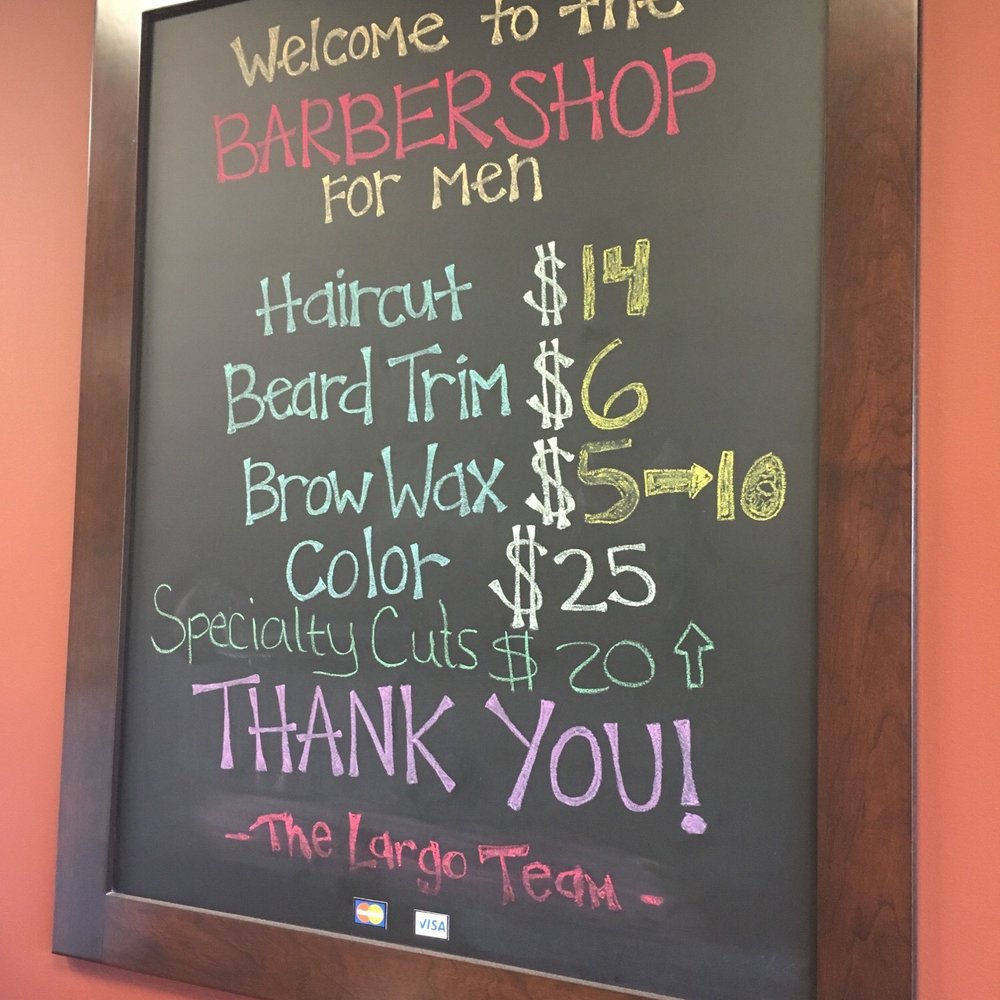 Welcome to the
BARBERSHOP
For Men
Haircut $14
Beard Trim $6
Brow Wax $5→10
Color $25
Specialty Cuts $20↑
THANK YOU!
-The Largo Team-
VISA